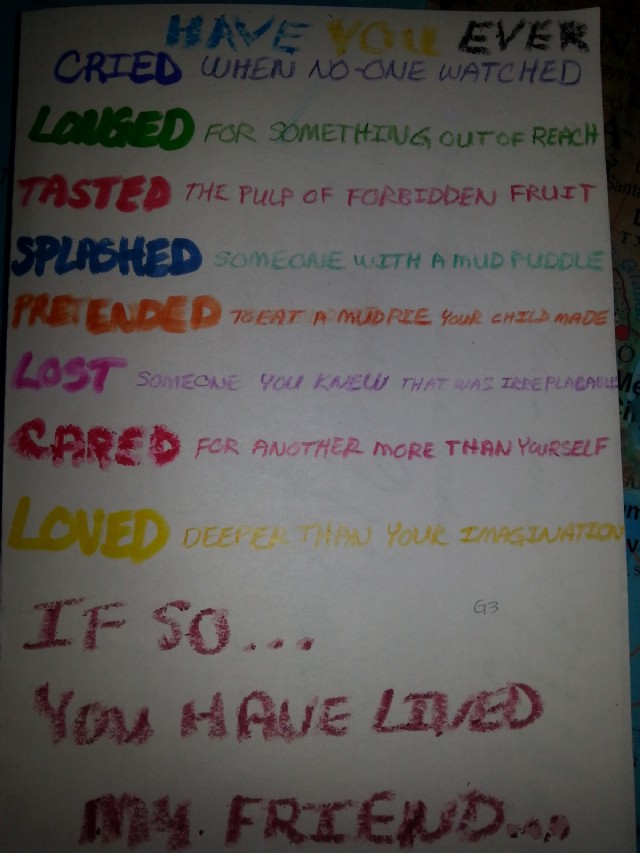 HAVE YOU EVER
CRIED WHEN NO-ONE WATCHED
LONGED FOR SOMETHING OUT OF REACH
TASTED THE PULP OF FORBIDDEN FRUIT
SPLASHED SOMEONE WITH A MUD PUDDLE
PRETENDED TO EAT A MUD PIE YOUR CHILD MADE
LOST SOMEONE YOU KNEW THAT WAS IRREPLABABLE
CARED FOR ANOTHER MORE THAN YOURSELF
LOVED DEEPER THAN YOUR IMAGINATION
IF SO...
G3
YOU HAVE LIVED
MY FRIEND...